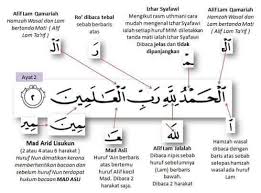 Alif Lam Qamariah
Hamzah Wasal dan Lam
bertanda Mati ( Alif
Lam Ta'rif )
Ro' dibaca tebal
sebab berbaris
atas
Izhar Syafawi
Mengikut rasm uthmani cara
mudah mengenal Izhar Syafawi
ialah setiap huruf MIM diletakkan
tanda mati ialah Izhar Syafawi
Dibaca jelas dan tidak
dipanjangkan
Alif Lam Qamariah
Hamzah Wasal dan
Lam bertanda Mati
( Alif Lam Ta'rif)
Ayat 2
الْحَمْدُ لِلَّهِ رَبِّ الْعَالَمِينَ ٢
Mad Arid Lisukun
(2 atau 4 atau 6 harakat )
Huruf Nun dimatikan kerana
memberhentikan bacaan dan
sebelum huruf Nun terdapat
hukum bacaan MAD ASLI
Mad Asli
Huruf 'Ain berbaris
atas bertemu
huruf Alif
kecil Mad.
Dibaca 2
harakat saja.
Alif Lam Jalalah
Dibaca nipis sebab
huruf sebelumnya
(Lam) berbaris
bawah.
Dibaca 2 harakat.
Hamzah wasal
dengan baris
atas sebab
selepas hamzah
wasal ada huruf
Lam